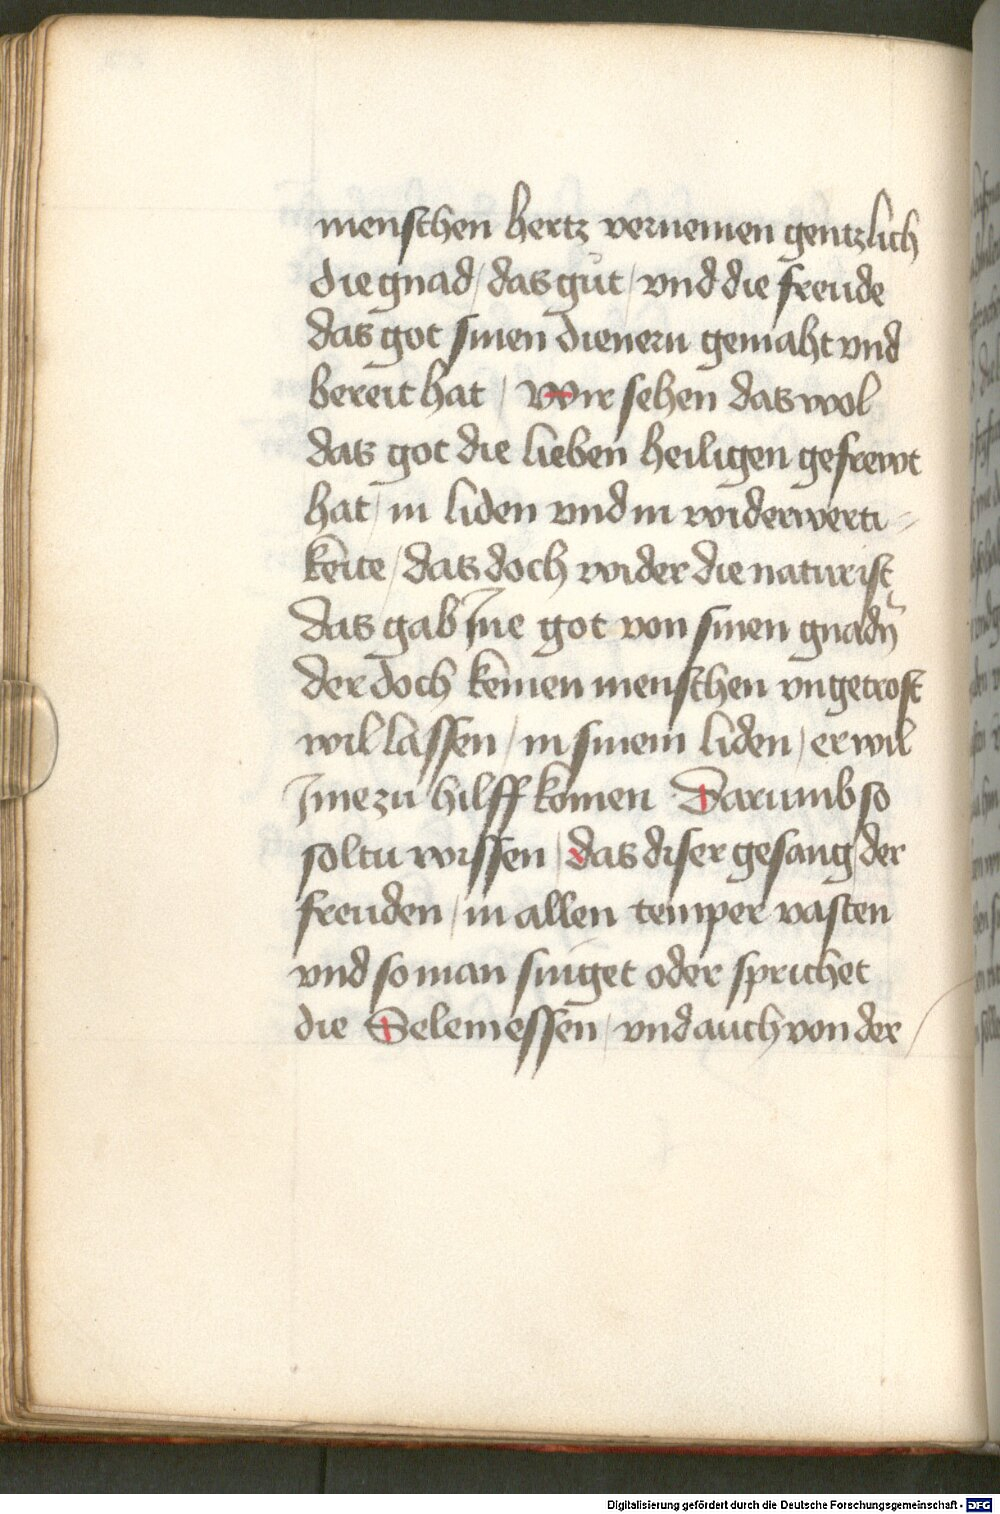 menschen hertz vernemen gentzlich
die gnad / das gůt / vnd die freude
das got sinen dienern gemaht vnd
bereit hat / Wir sehen das wol
das got die lieben heiligen gefrewt
hat / in liden vnd in widerwerti=
keite / das doch wider die natur ist
das gab Jne got von sinen gnadn̄
der doch keinen menschen vngetrost
wil lassen / in sinem liden / er wil
Jme zu hilff komen Darumb so
soltu wissen / das diser gesang der
freuden / in allen temper vasten
vnd so man singet oder sprichet
die Selemessen / vnd auch von der /
Digitalisierung gefördert durch die Deutsche Forschungsgemeinschaft - DFG